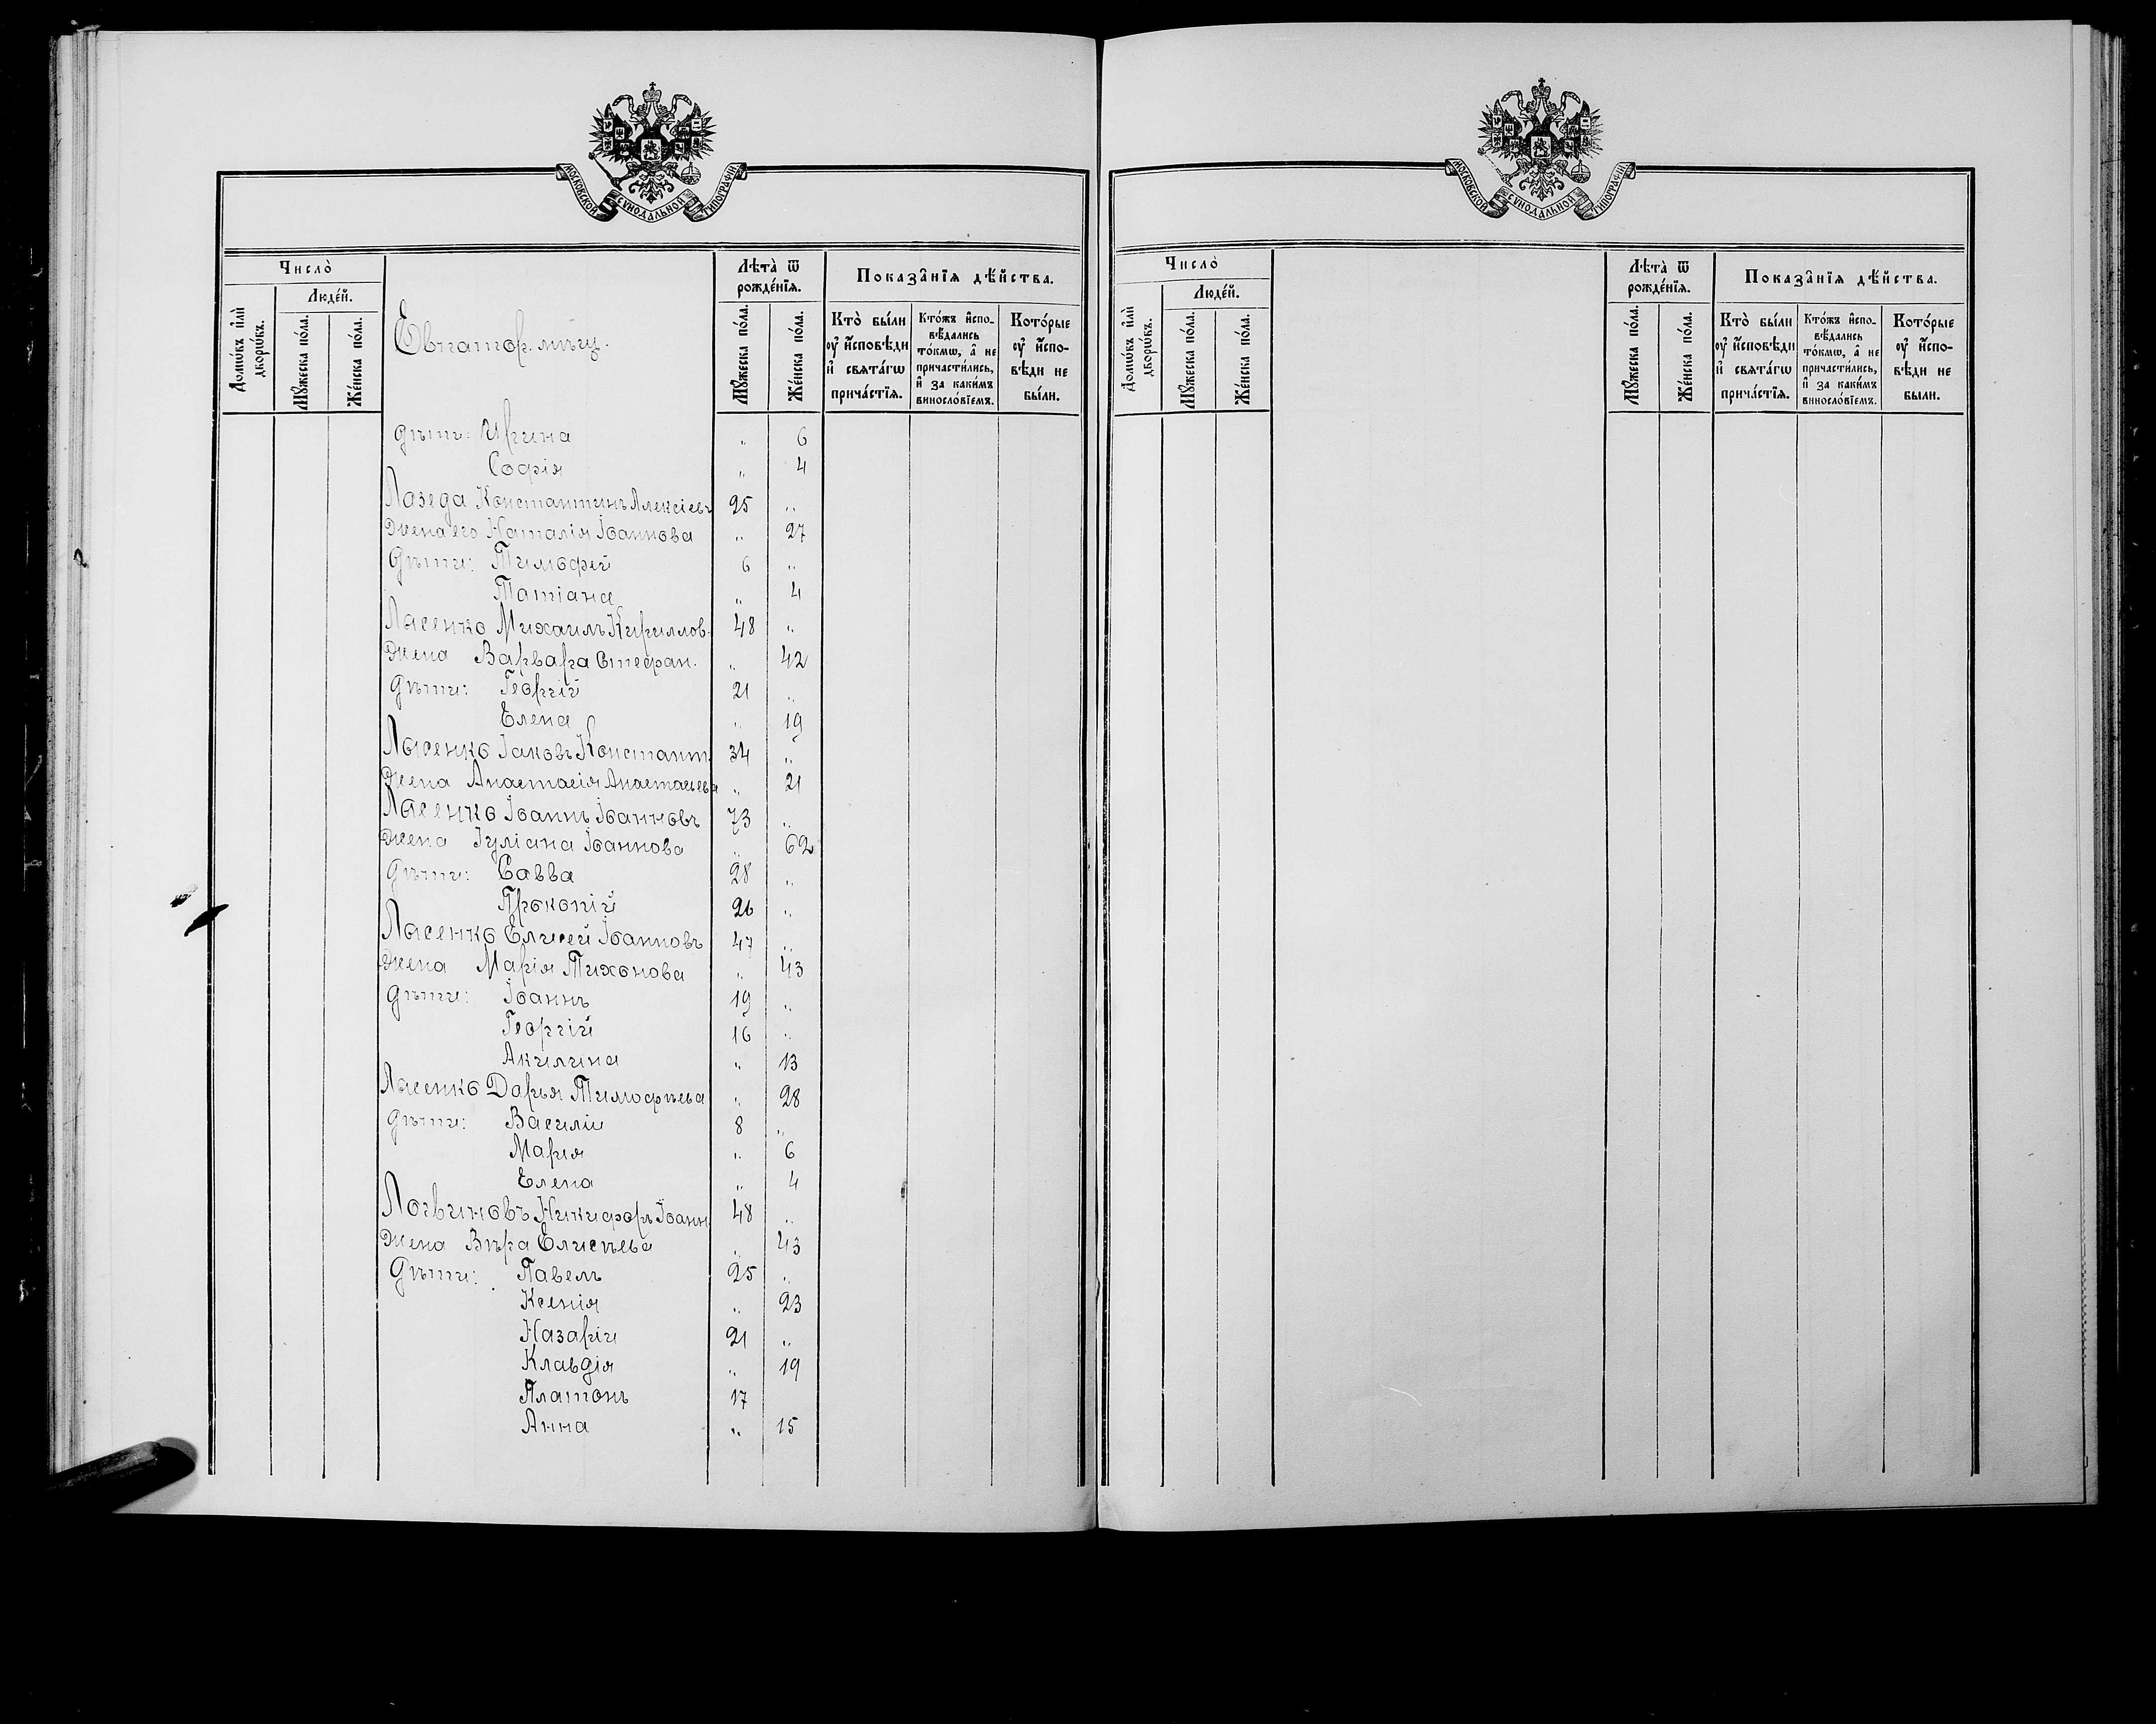 МОСКОВСКОЙ СѴНОДАЛЬНОЙ ТИПОГРАФІИ
Число̀
Домѡ́въ и҆лѝ дворѡ́въ.
Люде́й.
Мꙋ́жеска по́ла.
Же́нска по́ла.
Евпатор. мѣщ.
Лѣта̀ ѿ рожде́нїѧ.
Мꙋ́жеска по́ла.
Же́нска по́ла.
Показа̑нїѧ дѣ́йства.
Кто̀ бы́ли
ᲂу҆ и҆́сповѣди
и҆ свѧта́гѡ
прича́стїѧ.
Кто́жъ и҆спо-
вѣ́дались
то́кмѡ, а҆ не
причасти́лись,
и҆ за каки́мъ
виносло́вїемъ.
Кото́рые
ᲂу҆ и҆́спо-
вѣди не
бы́ли.
дѣти: Ирина " 6
Софія " 4
Лозеда Константинъ Алексіевъ 25 "
Жена его Наталія Іоаннова " 27
Дѣти: Тимофей 6 "
Татіана " 4
Лысенко Михаилъ Кириллов. 48 "
Жена Варвара Стефан. " 42
дѣти: Георгій 21 "
Елена " 19
Лысенко Іаковъ Констант. 34 "
Жена Анастасія Анастасьева " 21
Лысенко Іоаннъ Іоанновъ 73 "
Жена Іуліана Іоаннова " 62
дѣти: Савва 28 "
Прокопій 26 "
Лысенко Елисей Іоанновъ 47 "
Жена Марія Тихонова " 43
дѣти: Іоаннъ 19 "
Георгій 16 "
Акилина " 13
Лысенко Дарья Тимофѣева " 28
дѣти: Василіи 8 "
Марія " 6
Елена " 4
Логвиновъ Никифоръ Іоанн. 48 "
Жена Вѣра Елисѣева " 43
Дѣти: Павелъ 25 "
Ксенія " 23
Назарій 21 "
Клавдія " 19
Платонъ 17
Анна " 15
МОСКОВСКОЙ СѴНОДАЛЬНОЙ ТИПОГРАФІИ
Число̀
Домѡ́въ и҆лѝ дворѡ́въ.
Люде́й.
Мꙋ́жеска по́ла.
Же́нска по́ла.
Лѣта̀ ѿ рожде́нїѧ.
Мꙋ́жеска по́ла.
Же́нска по́ла.
Показа̑нїѧ дѣ́йства.
Кто̀ бы́ли
ᲂу҆ и҆́сповѣди
и҆ свѧта́гѡ
прича́стїѧ.
Кто́жъ и҆спо-
вѣ́дались
то́кмѡ, а҆ не
причасти́лись,
и҆ за каки́мъ
виносло́вїемъ.
Кото́рые
ᲂу҆ и҆́спо-
вѣди не
бы́ли.